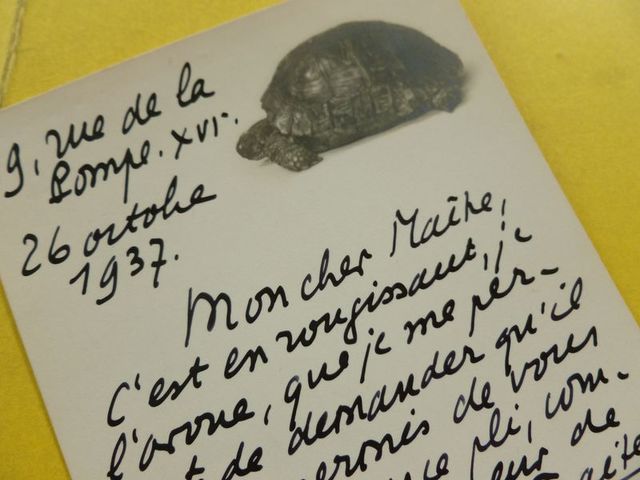 9, rue de la
Pompe. XVIe.
26 octobre
1937.
Mon cher Maître,
C'est en rougissant, je
l'avoue, que je me per-
t de demander qu'il
permis de vous
ce pli, com-
eur de